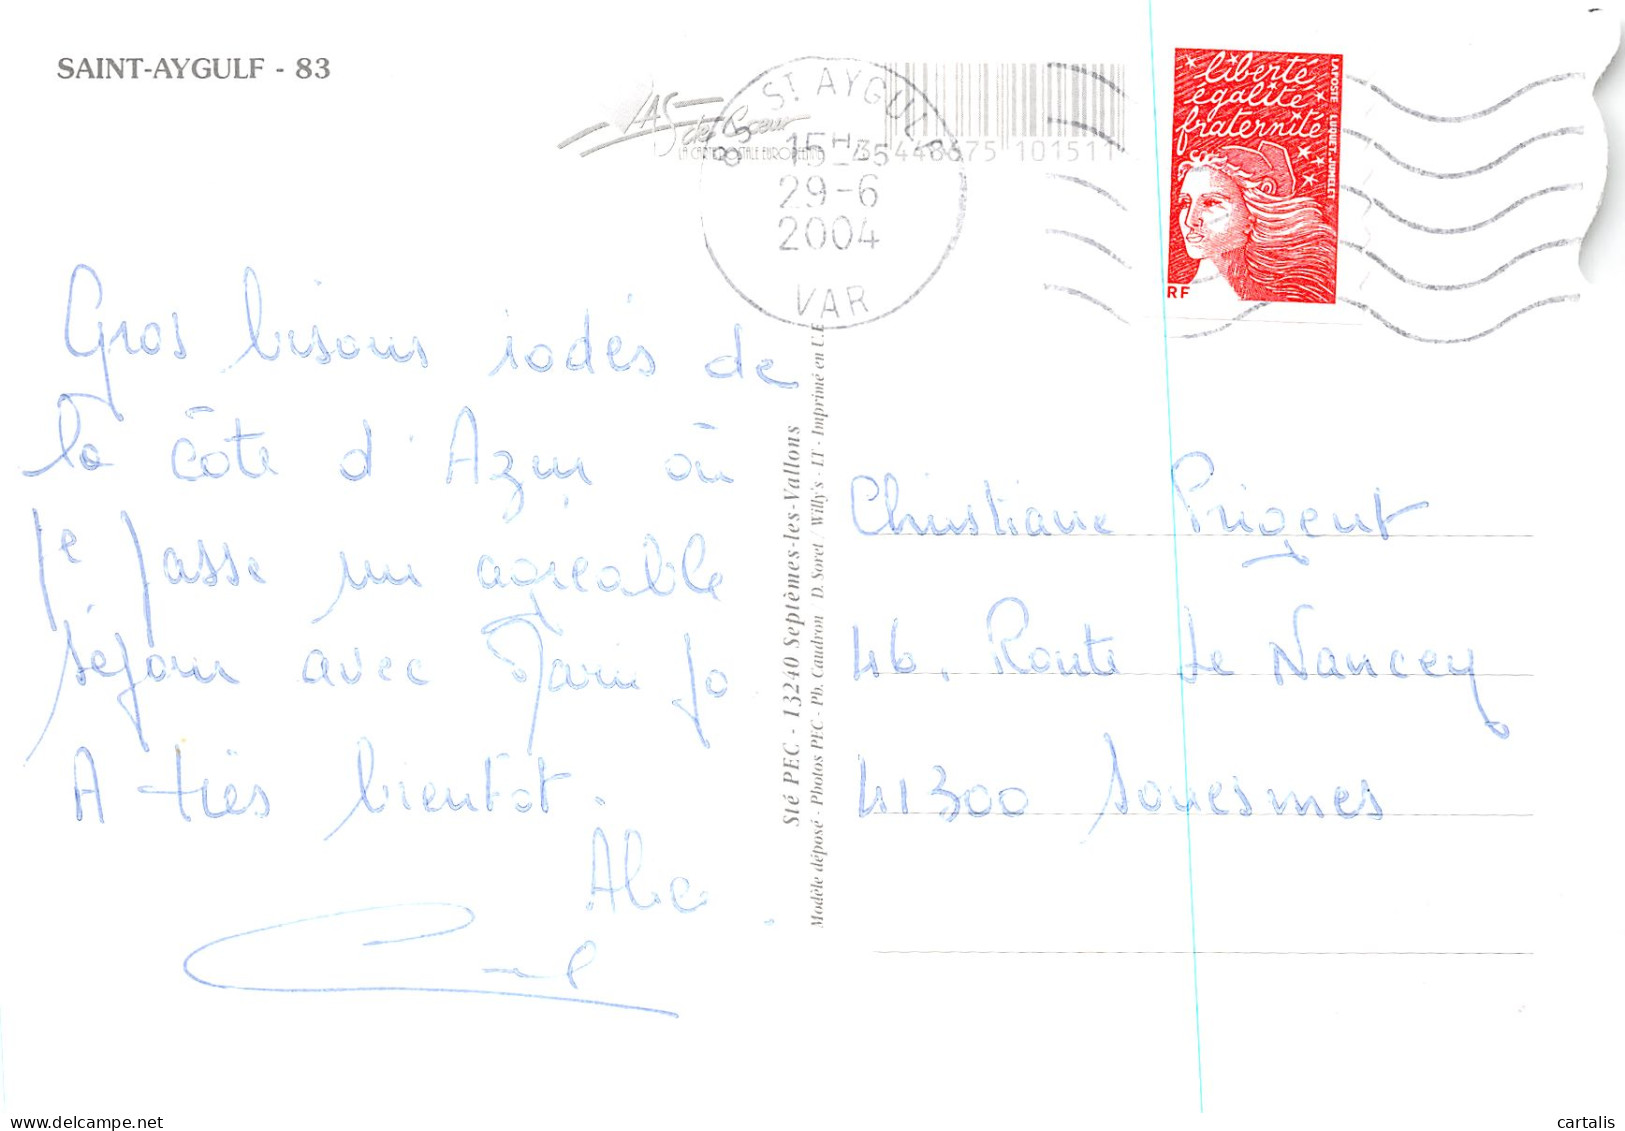 SAINT-AYGULF - 83
As de Cœur
LA CARTE POSTALE EUROPÉENNE
83 ST AYGULF
15H45
29-6
2004
VAR
101511
liberté
égalité
fraternité
LA POSTE LUQUET-JUMELET
RF
Gros bisous iodés de
la côte d'Azur où
je passe un agréable
séjour avec Marie Jo
A très bientôt.
Sté PEC - 13240 Septèmes-les-Vallons
Modèle déposé - Photos PEC - Ph. Caudron / D. Soret / Willy's - LT - Imprimé en U.E
Christiane Prigent
46, Route de Nancey
41300 Souesmes
cartalis